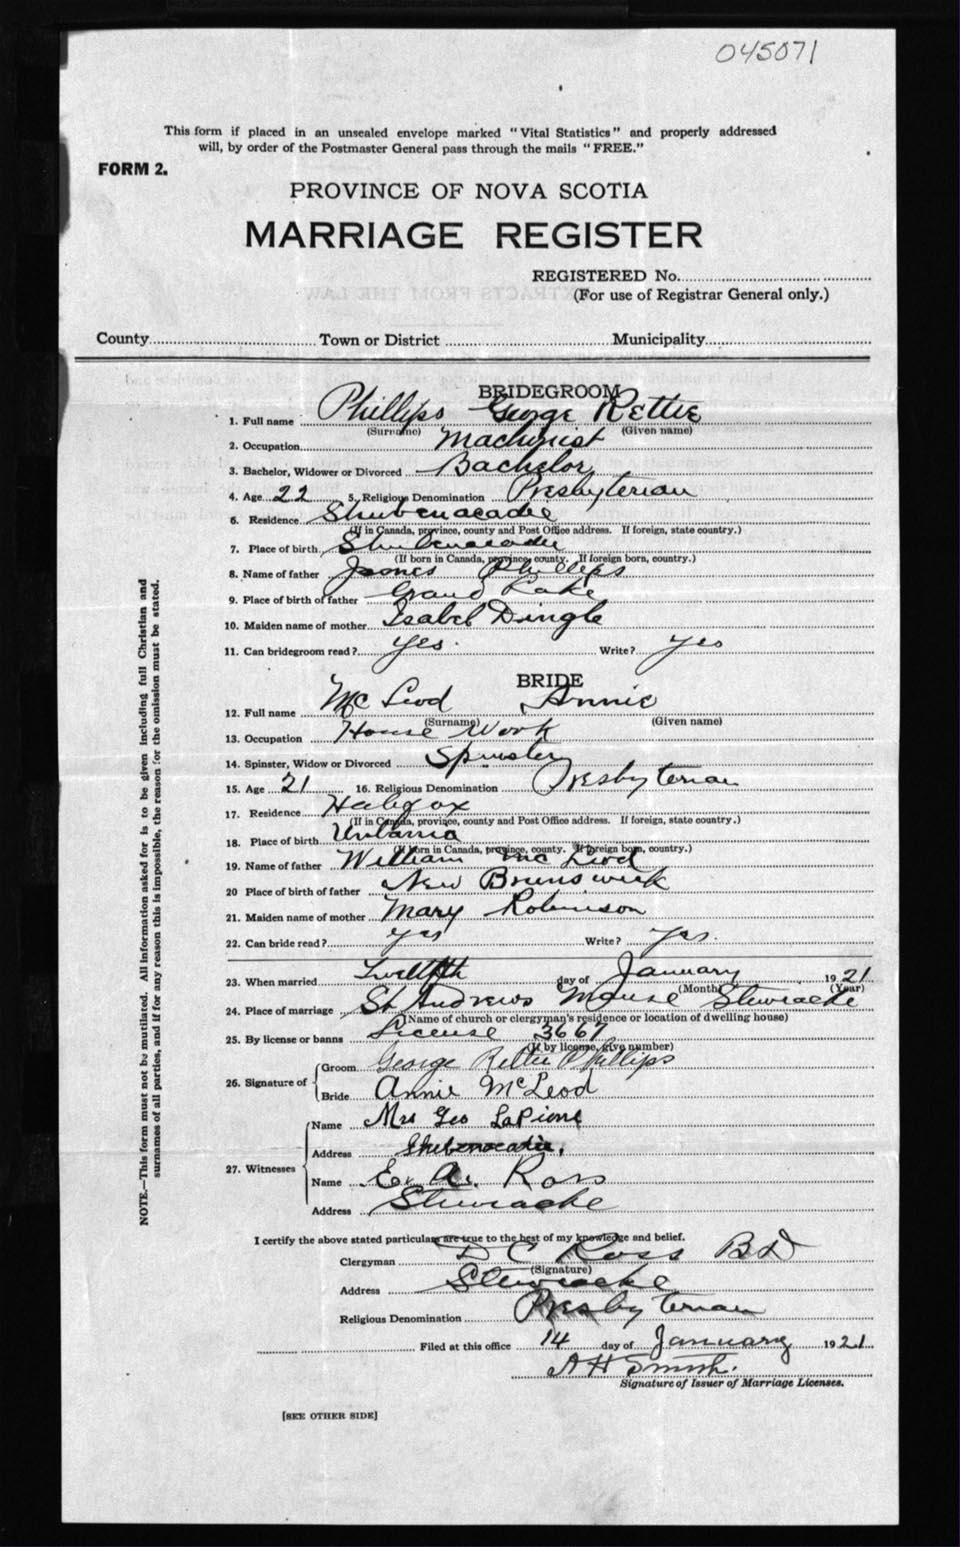 045071
This form if placed in an unsealed envelope marked "Vital Statistics" and properly addressed
will, by order of the Postmaster General pass through the mails "FREE."
FORM 2.
PROVINCE OF NOVA SCOTIA
MARRIAGE REGISTER
REGISTERED No.
(For use of Registrar General only.)
County Town or District Municipality
BRIDEGROOM
1. Full name Phillips George Rettie
(Surname) (Given name)
2. Occupation Machinist
3. Bachelor, Widower or Divorced Bachelor
4. Age 22 5. Religious Denomination Presbyterian
6. Residence Shubenacadie
(If in Canada, province, county and Post Office address. If foreign, state country.)
7. Place of birth Shubenacadie
(If born in Canada, province, county. If foreign born, country.)
8. Name of father James Phillips
9. Place of birth of father Grand Lake
10. Maiden name of mother Isabel Dingle
11. Can bridegroom read? Yes. Write? Yes
BRIDE
12. Full name McLeod Annie
(Surname) (Given name)
13. Occupation House Work
14. Spinster, Widow or Divorced Spinster
15. Age 21 16. Religious Denomination Presbyterian
17. Residence Halifax
(If in Canada, province, county and Post Office address. If foreign, state country.)
18. Place of birth
(If born in Canada, province, county. If foreign born, country.)
19. Name of father William McLeod
20 Place of birth of father New Brunswick
21. Maiden name of mother Mary Robinson
22. Can bride read? Yes Write? Yes.
23. When married Twelfth day of January 1921
(Month) (Year)
24. Place of marriage St Andrews Manse Stewiacke
(Name of church or clergyman's residence or location of dwelling house)
25. By license or banns License 3667
(If by license, give number)
26. Signature of Groom George Rettie Phillips
Bride Annie McLeod
27. Witnesses Name Mrs Geo LaPierre
Address Shubenacadie.
Name E. A. Ross
Address Stewiacke
I certify the above stated particulars are true to the best of my knowledge and belief.
Clergyman D C Ross BD
(Signature)
Address Stewiacke
Religious Denomination Presbyterian
Filed at this office 14 day of January 1921
A H Smith.
Signature of Issuer of Marriage Licenses.
[SEE OTHER SIDE]
NOTE.—This form must not be mutilated. All information asked for is to be given including full Christian and
surnames of all parties, and if for any reason this is impossible, the reason for the omission must be stated.